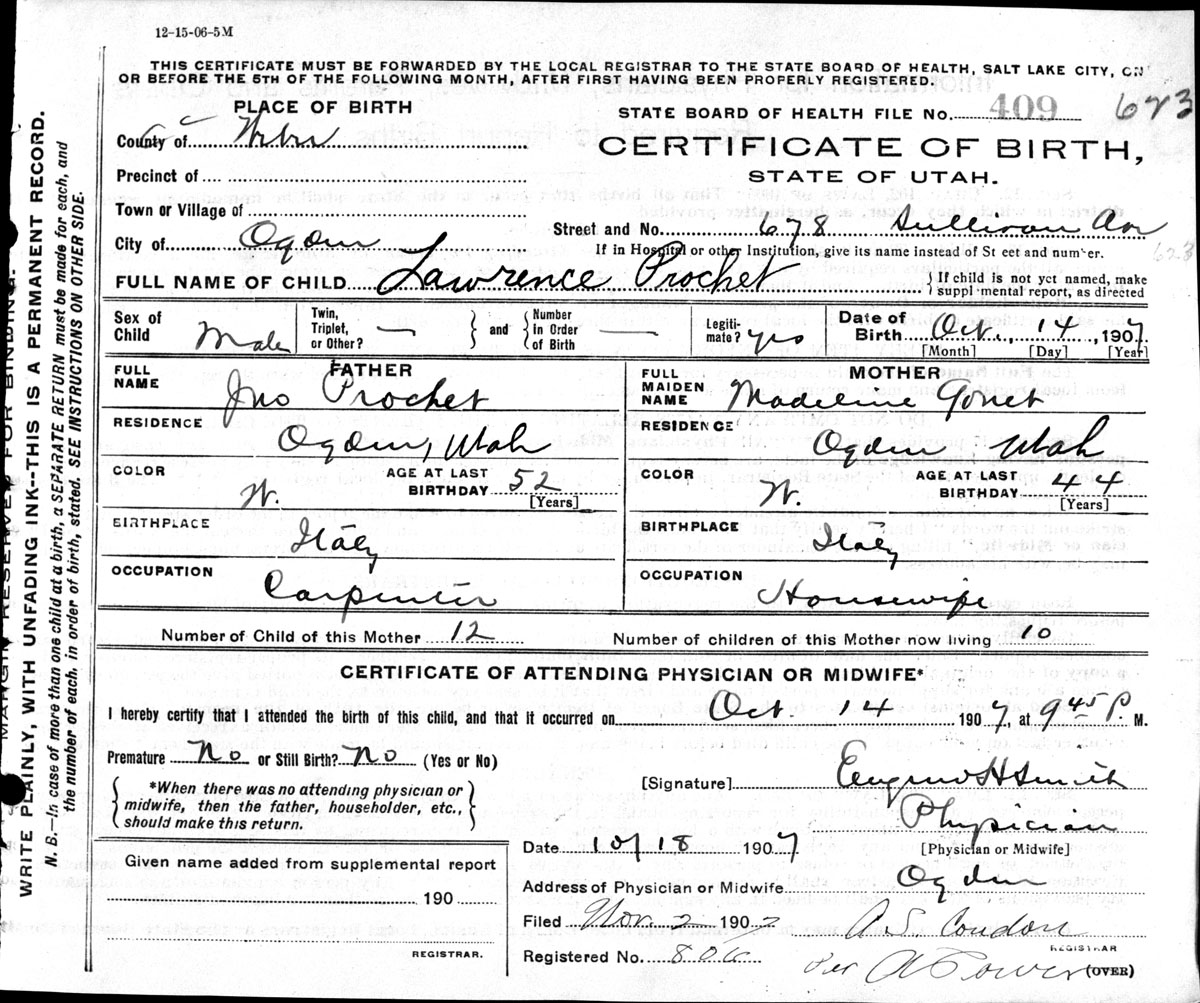 12-15-06-5M
THIS CERTIFICATE MUST BE FORWARDED BY THE LOCAL REGISTRAR TO THE STATE BOARD OF HEALTH, SALT LAKE CITY, ON
OR BEFORE THE 5TH OF THE FOLLOWING MONTH, AFTER FIRST HAVING BEEN PROPERLY REGISTERED.
PLACE OF BIRTH
STATE BOARD OF HEALTH FILE NO. 409 623
County of Weber
CERTIFICATE OF BIRTH,
STATE OF UTAH.
Precinct of
Town or Village of
Street and No. 678 Sullivan Av
City of Ogden
If in Hospital or other Institution, give its name instead of Street and number.
623
FULL NAME OF CHILD Lawrence Prochet
{If child is not yet named, make
supplmental report, as directed
Sex of Child Male
Twin, Triplet, or Other? —
and
Number in Order of Birth —
Legiti-mate? yes
Date of Birth Oct. 14, 1907
[Month] [Day] [Year]
FATHER
FULL NAME Jno Prochet
RESIDENCE Ogden, Utah
COLOR W.
AGE AT LAST BIRTHDAY 52
[Years]
BIRTHPLACE Italy
OCCUPATION Carpenter
MOTHER
FULL MAIDEN NAME Madeline Gonet
RESIDENCE Ogden Utah
COLOR W.
AGE AT LAST BIRTHDAY 44
[Years]
BIRTHPLACE Italy
OCCUPATION Housewife
Number of Child of this Mother 12
Number of children of this Mother now living 10
CERTIFICATE OF ATTENDING PHYSICIAN OR MIDWIFE*
I hereby certify that I attended the birth of this child, and that it occurred on Oct. 14 1907, at 9 45 P. M.
Premature No or Still Birth? No (Yes or No)
*When there was no attending physician or
midwife, then the father, householder, etc.,
should make this return.
[Signature] Eugene H Smith
Physician
[Physician or Midwife]
Date 10/18 1907
Address of Physician or Midwife. Ogden
Given name added from supplemental report
190
REGISTRAR.
Filed Nov. 2 1907
A S Condon
REGISTRAR
Registered No. 806
Per A Power
(OVER)
MARGIN RESERVED FOR BINDING.
WRITE PLAINLY, WITH UNFADING INK--THIS IS A PERMANENT RECORD.
N. B.—In case of more than one child at a birth, a SEPARATE RETURN must be made for each, and
the number of each, in order of birth, stated. SEE INSTRUCTIONS ON OTHER SIDE.